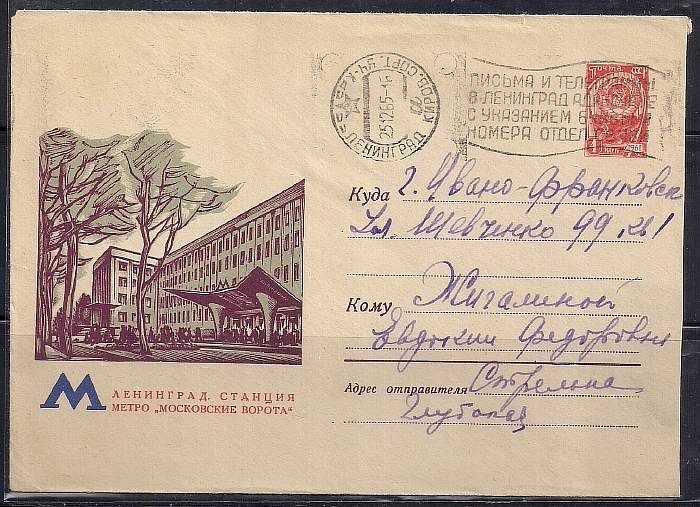 КИРОВ. СОРТ. УЧ-К
25.12.65-16
ЛЕНИНГРАД
ПИСЬМА И
В ЛЕНИНГРАД
С УКАЗАНИЕМ
НОМЕРА
ПОЧТА
4
1961
Куда г. Ивано-Франковск
Ул. Шевченко 99 кв 1
Кому Жигалиной
Евдокии Федоровны
Адрес отправителя Стрельна
Глубокая
М
М ЛЕНИНГРАД. СТАНЦИЯ
МЕТРО „МОСКОВСКИЕ ВОРОТА“